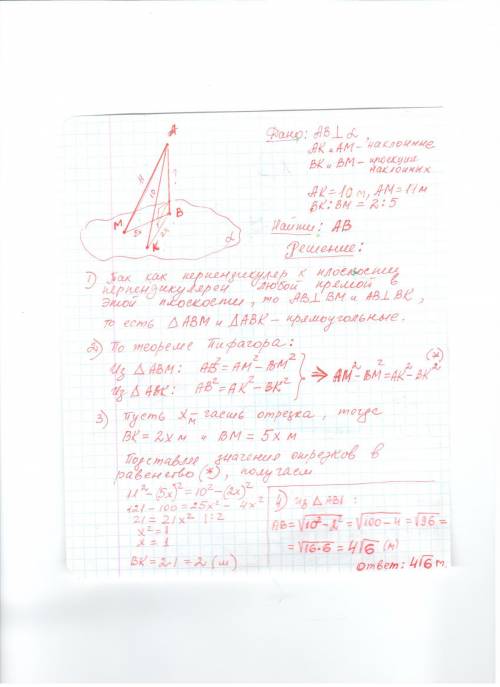 A
11
10
?
M
B
5x
2x
K
α
Дано: AB⊥α
AK и AM - наклонные
BK и BM - проекции
наклонных
AK = 10 м, AM = 11 м
BK : BM = 2 : 5
Найти: AB
Решение:
1) Так как перпендикуляр к плоскости
перпендикулярен любой прямой в
этой плоскости, то AB⊥BM и AB⊥BK,
то есть △ABM и △ABK - прямоугольные.
2) По теореме Пифагора:
Из △ABM: AB² = AM² - BM²
Из △ABK: AB² = AK² - BK²
⇒ AM² - BM² = AK² - BK² (*)
3) Пусть x м - часть отрезка, тогда
BK = 2x м и BM = 5x м
Подставляя значения отрезков в
равенство (*), получаем
11² - (5x)² = 10² - (2x)²
121 - 100 = 25x² - 4x²
21 = 21x² | : 2
x² = 1
x = 1
BK = 2·1 = 2 (м)
4) Из △ABK:
AB = √10² - 2² = √100 - 4 = √96 =
= √16·6 = 4√6 (м)
Ответ: 4√6 м.